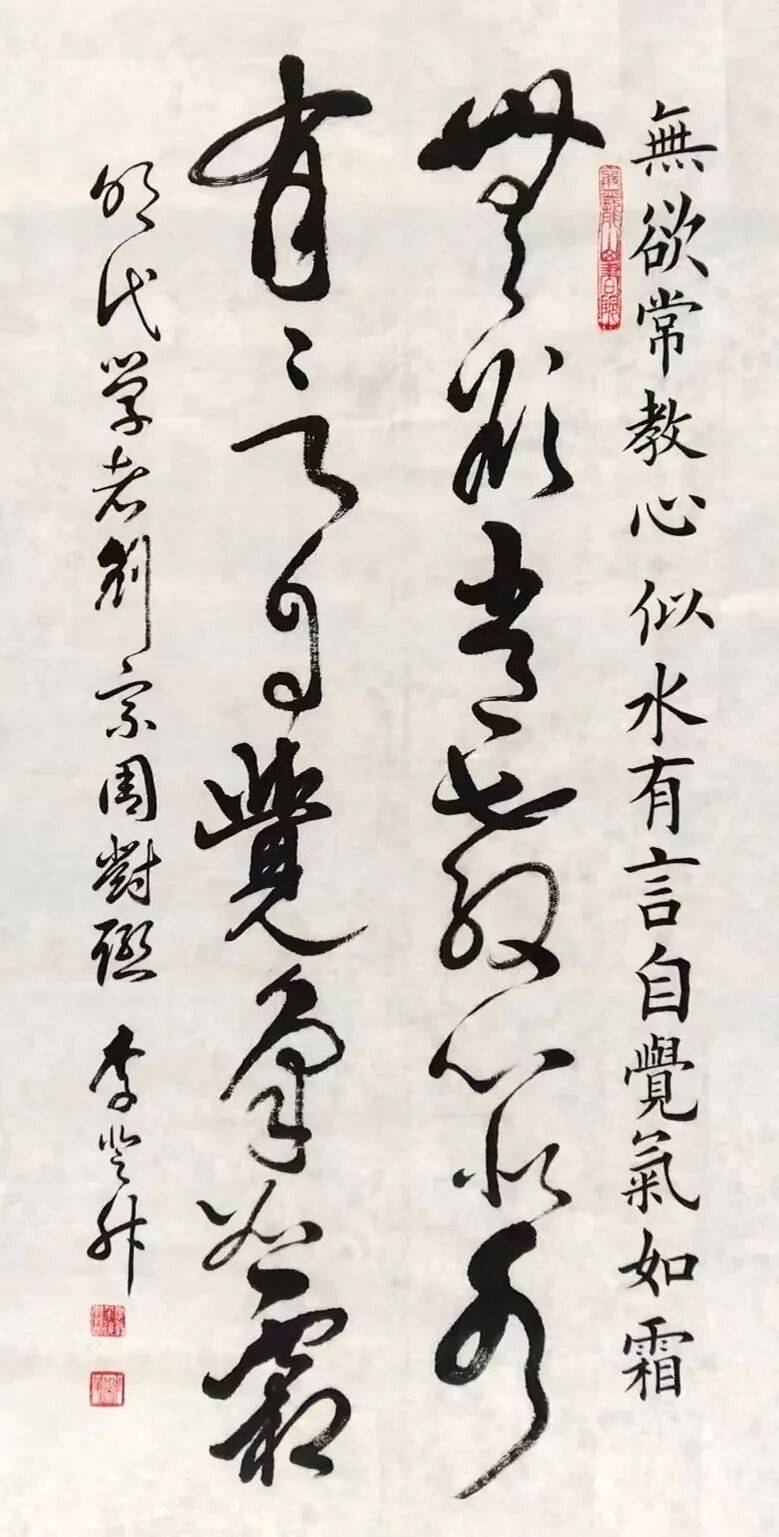 無欲常教心似水有言自覺氣如霜
無欲常教心似水
有言自覺氣如霜
明代学者劉宗周對聯 李